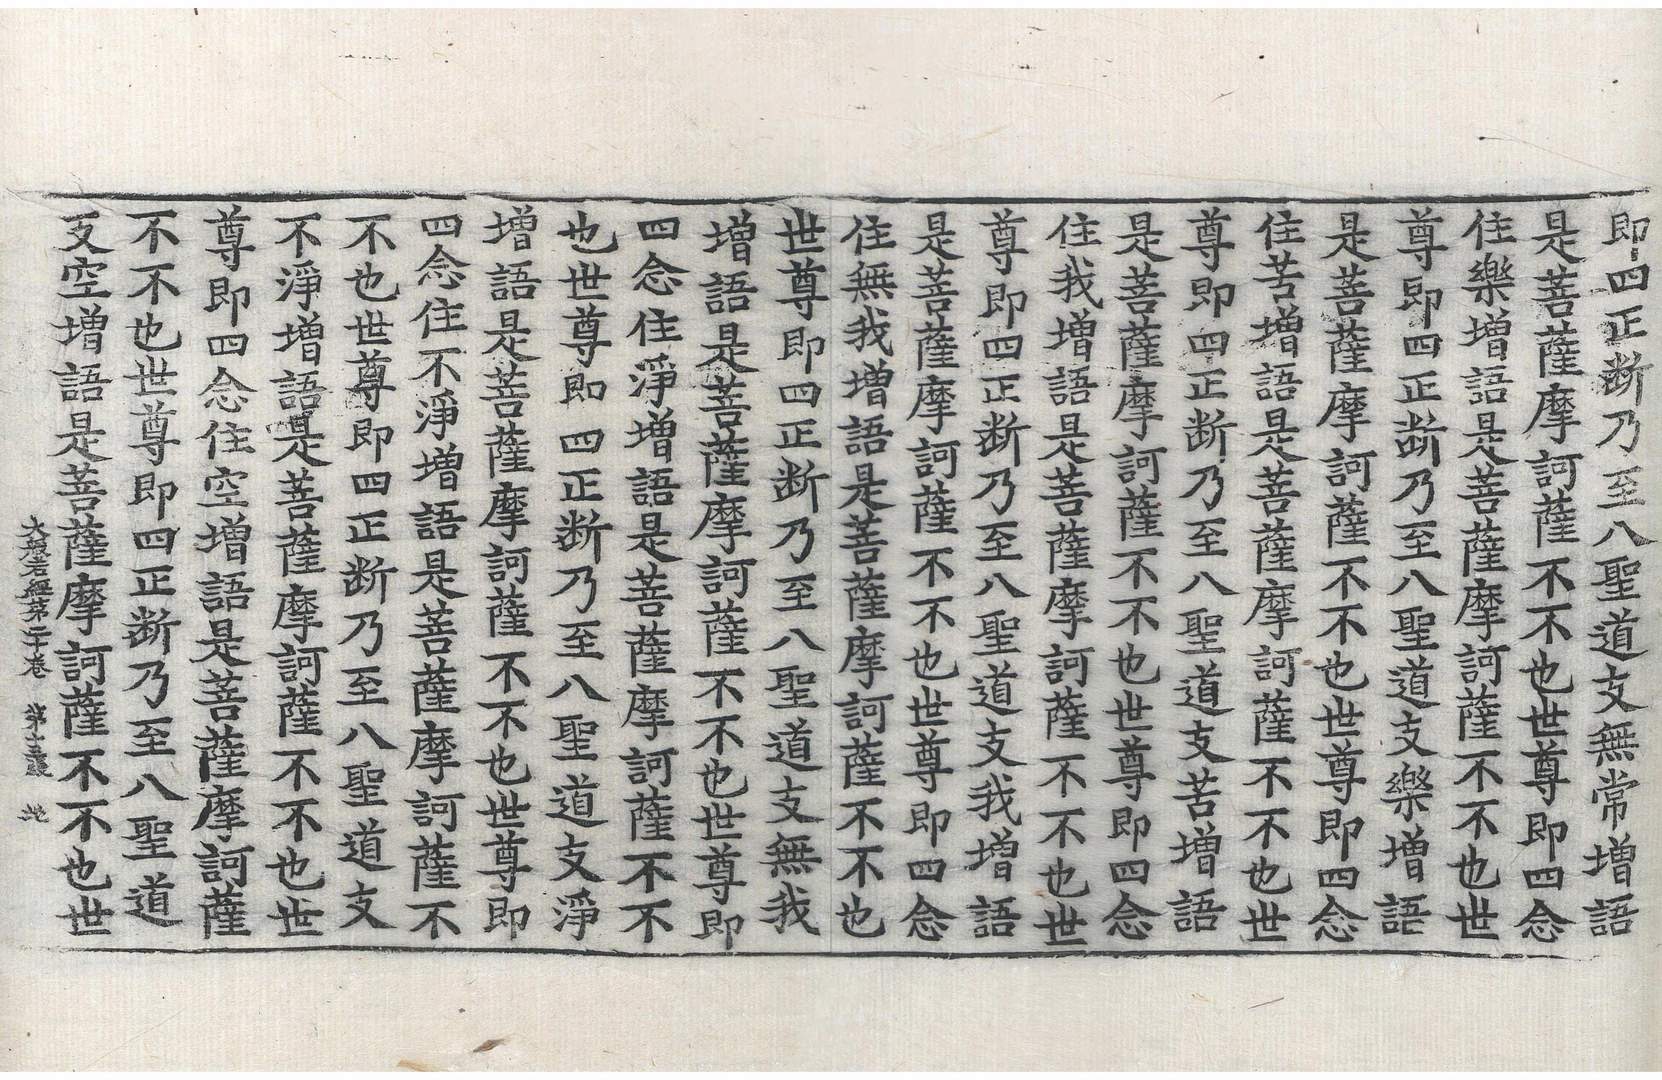 即四正断乃至八聖道支無常增語
是菩薩摩訶薩不不也世尊即四念
住樂增語是菩薩摩訶薩不不也世
尊即四正断乃至八聖道支樂增語
是菩薩摩訶薩不不也世尊即四念
住苦增語是菩薩摩訶薩不不也世
尊即四正断乃至八聖道支苦增語
是菩薩摩訶薩不不也世尊即四念
住我增語是菩薩摩訶薩不不也世
尊即四正断乃至八聖道支我增語
是菩薩摩訶薩不不也世尊即四念
住無我增語是菩薩摩訶薩不不也
世尊即四正断乃至八聖道支無我
增語是菩薩摩訶薩不不也世尊即
四念住淨增語是菩薩摩訶薩不不
也世尊即四正断乃至八聖道支淨
增語是菩薩摩訶薩不不也世尊即
四念住不淨增語是菩薩摩訶薩不
不也世尊即四正断乃至八聖道支
不淨增語是菩薩摩訶薩不不也世
尊即四念住空增語是菩薩摩訶薩
不不也世尊即四正断乃至八聖道
支空增語是菩薩摩訶薩不不也世
大般若經第二十卷 第 地